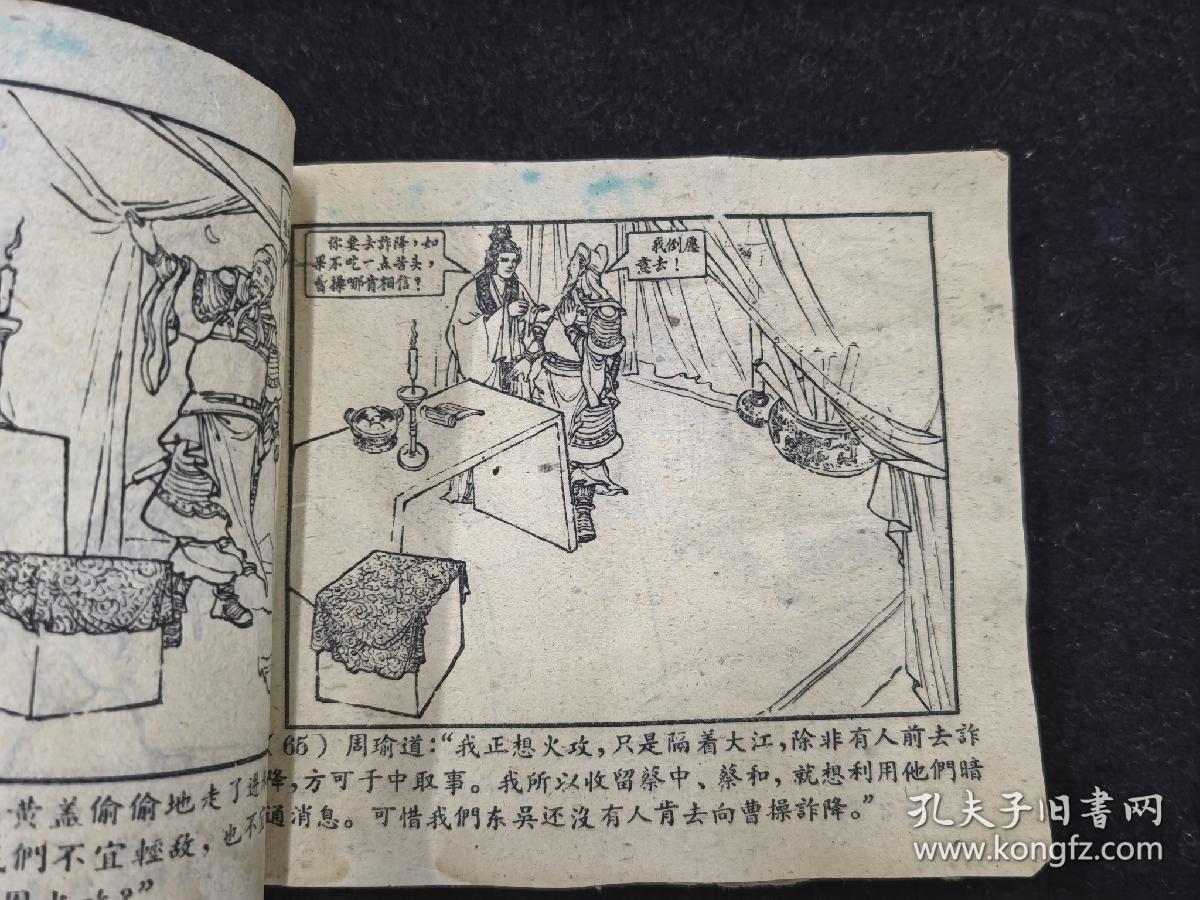 黄盖偷偷地走了进
們不宜輕敌，也不
你要去詐降，如
果不吃一点苦头，
曹操哪肯相信？
我倒愿
意去！
（65）周瑜道：“我正想火攻，只是隔着大江，除非有人前去詐
降，方可于中取事。我所以收留蔡中、蔡和，就想利用他們暗
通消息。可惜我們东吴还沒有人肯去向曹操詐降。”
孔夫子旧书网
www.kongfz.com